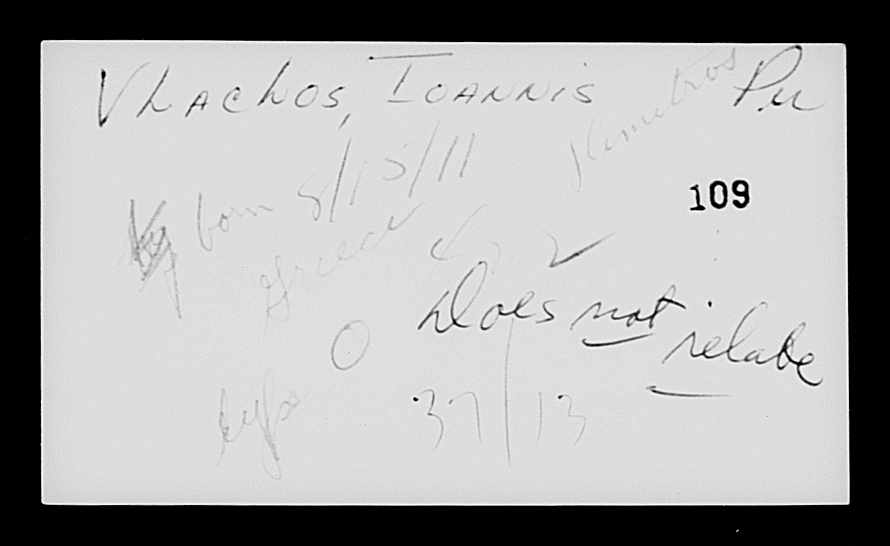 Vlachos, Ioannis Pu
Dimitros
born 8/15/11
109
Greece
Does not relate
O
37/13